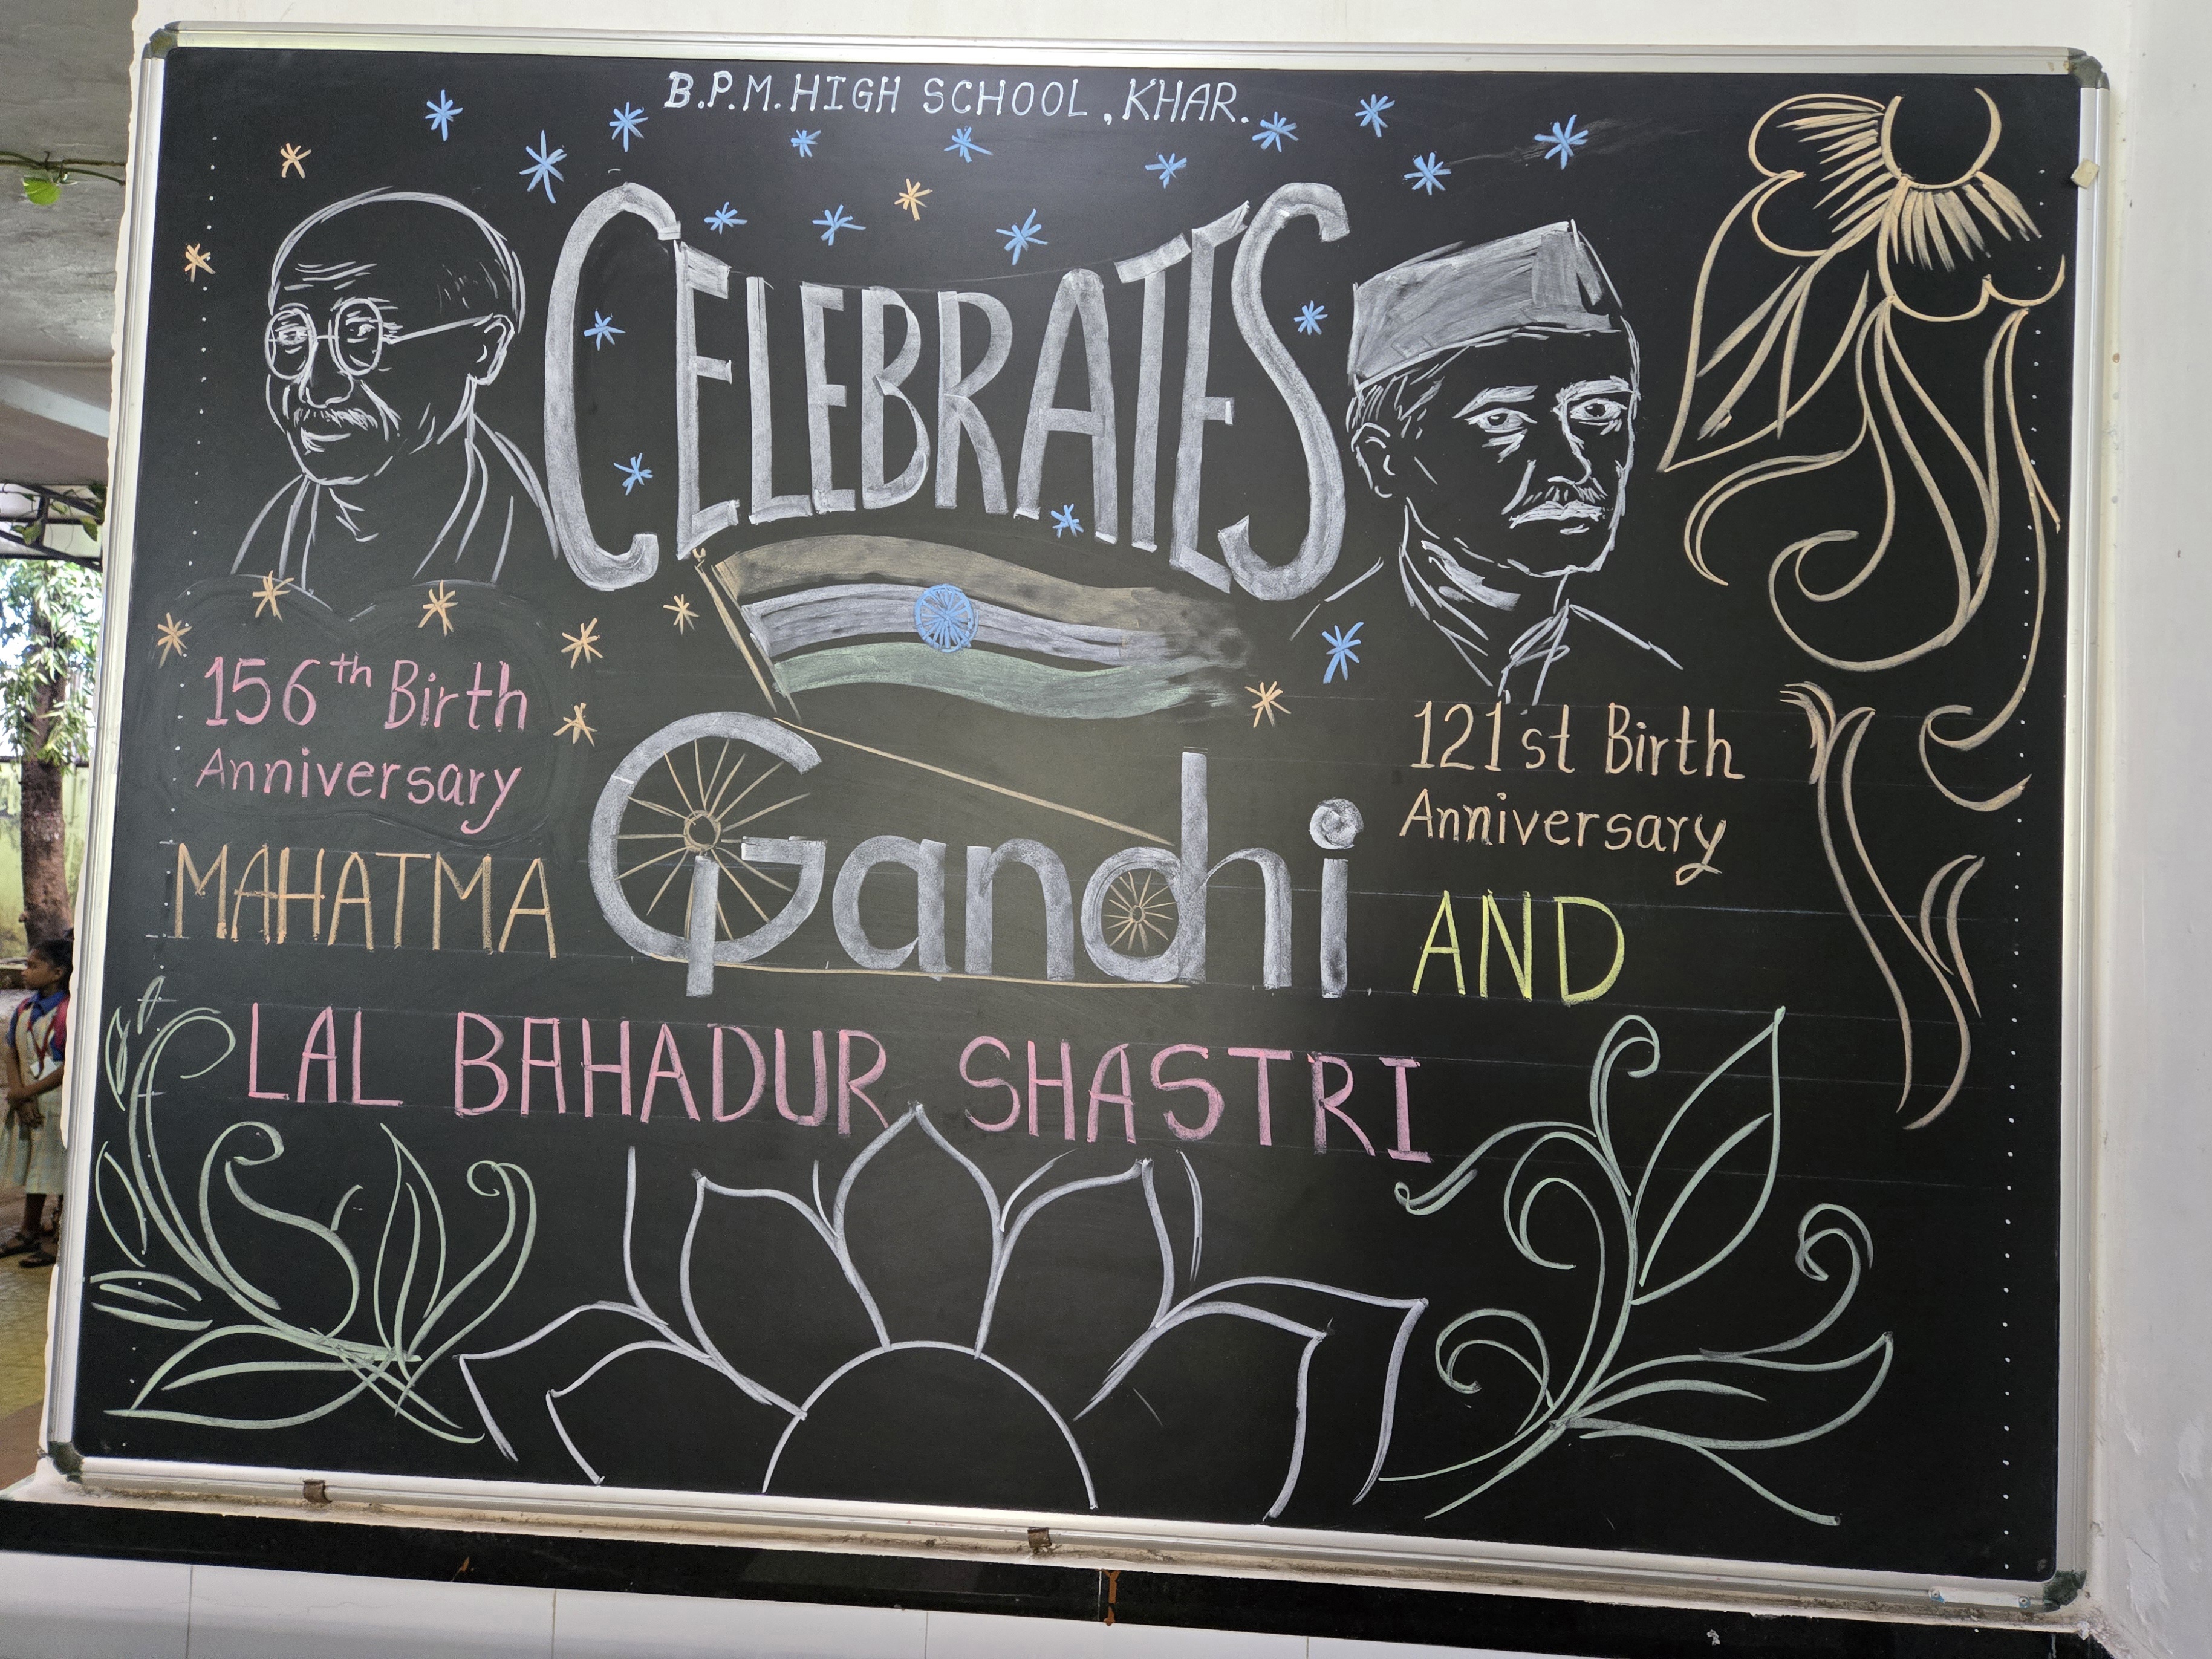 B.P.M. HIGH SCHOOL, KHAR.
CELEBRATES
156th Birth
Anniversary
121st Birth
Anniversary
MAHATMA Gandhi AND
LAL BAHADUR SHASTRI